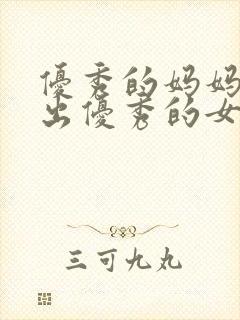 優秀的妈妈
出優秀的女
三可九丸